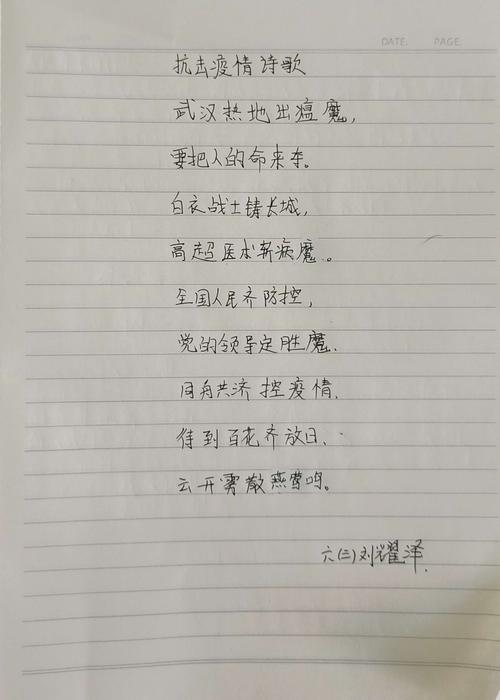 DATE. PAGE.
抗击疫情诗歌
武汉热地出瘟魔,
要把人的命来夺。
白衣战士铸长城,
高超医术斩病魔。
全国人民齐防控,
党的领导定胜魔.
同舟共济控疫情.
待到百花齐放日、
云开雾散燕莺鸣。
六(三)刘耀泽.